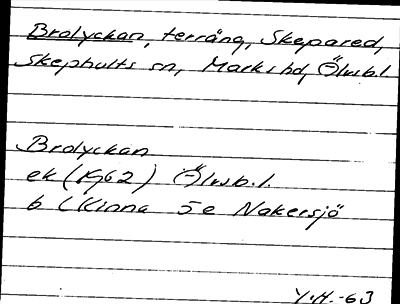 Brolyckan, terräng, Skepared,
Skephults sn, Marks hd, Älvsb.l
Brolyckan
ek (Kg62) Älvsb.l.
b (Kinna 5e Nakersjö
Y.H.-63